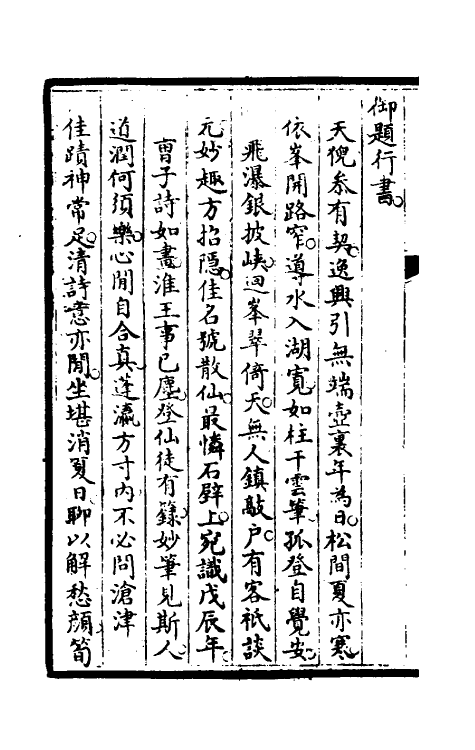 御題行書
天倪叅有契逸興引無端壺裏年為日松間夏亦寒
依峯開路窄導水入湖寬如柱干雲筆孤登自覺安
飛瀑銀披峽迴峯翠倚天無人鎮敲户有客祇談
元妙趣方招隱佳名號散仙最憐石壁上宛識戊辰年
曺子詩如畫淮王事已塵登仙徒有籙妙筆見斯人
道潤何須樂心閒自合真蓬瀛方寸內不必問滄津
佳蹟神常足清詩意亦閒坐堪消夏日聊以解愁顔筍